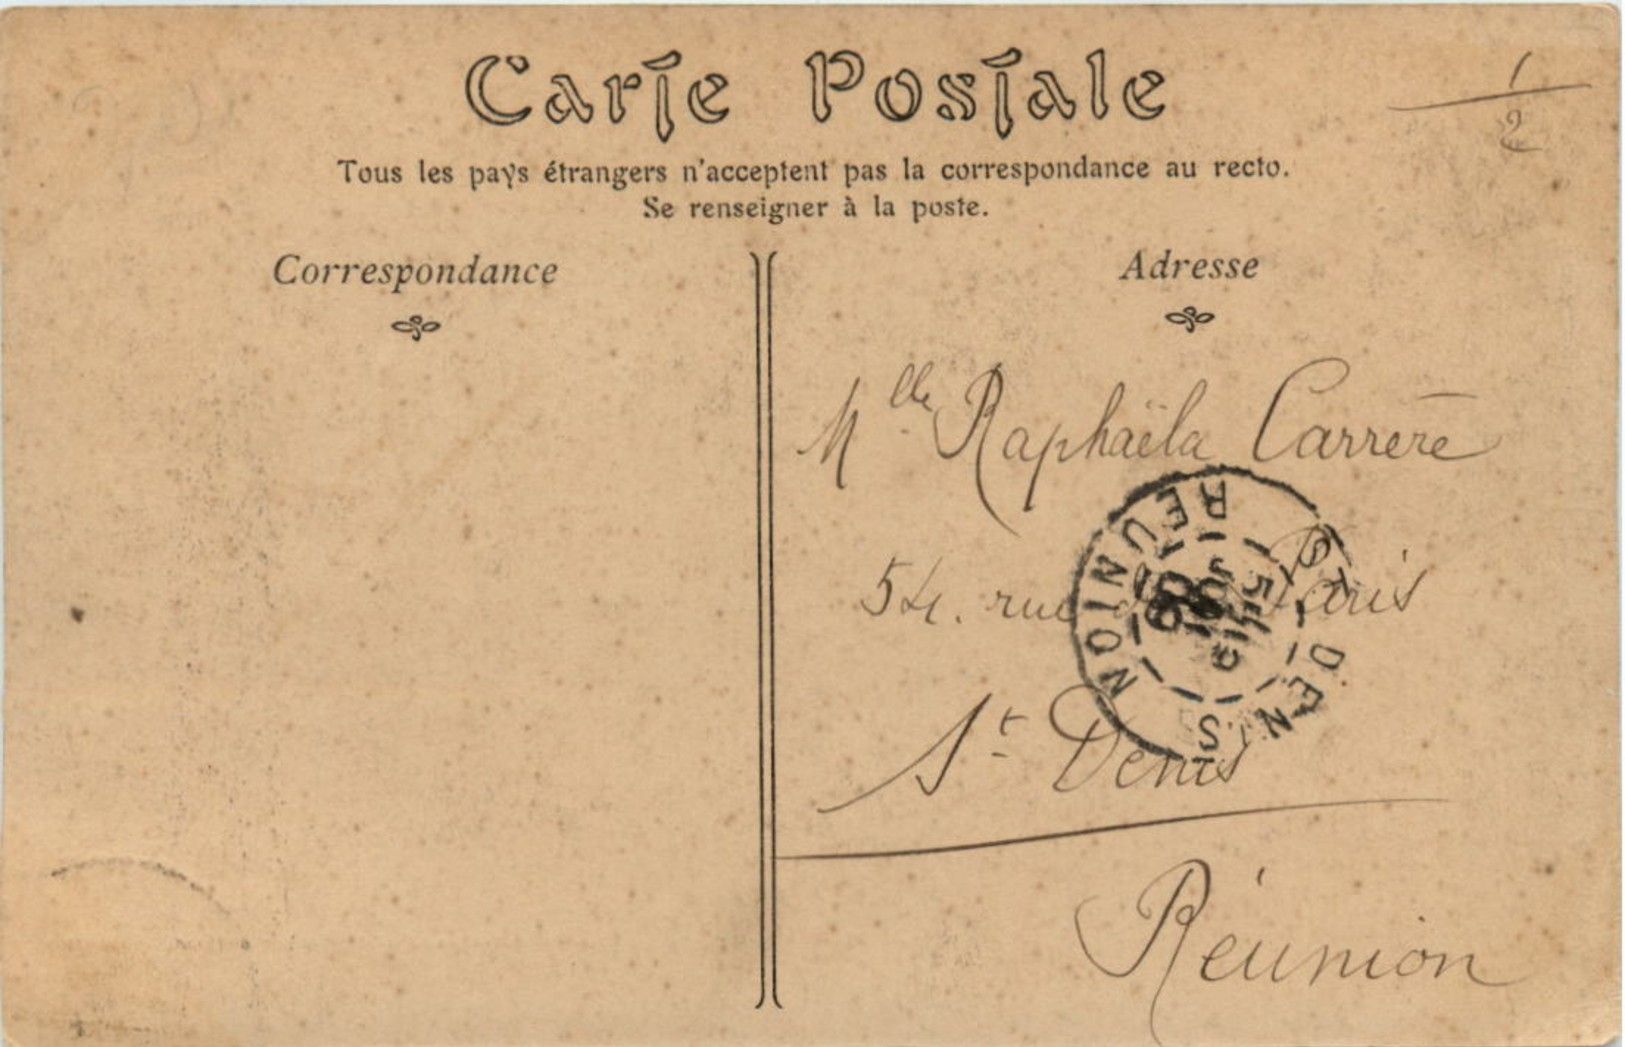 Carte Postale
1
2
Tous les pays étrangers n'acceptent pas la correspondance au recto.
Se renseigner à la poste.
Correspondance
Adresse
Mlle Raphaëla Carrère
54. rue Paris
St Denis
Réunion
ST DENIS
REUNION